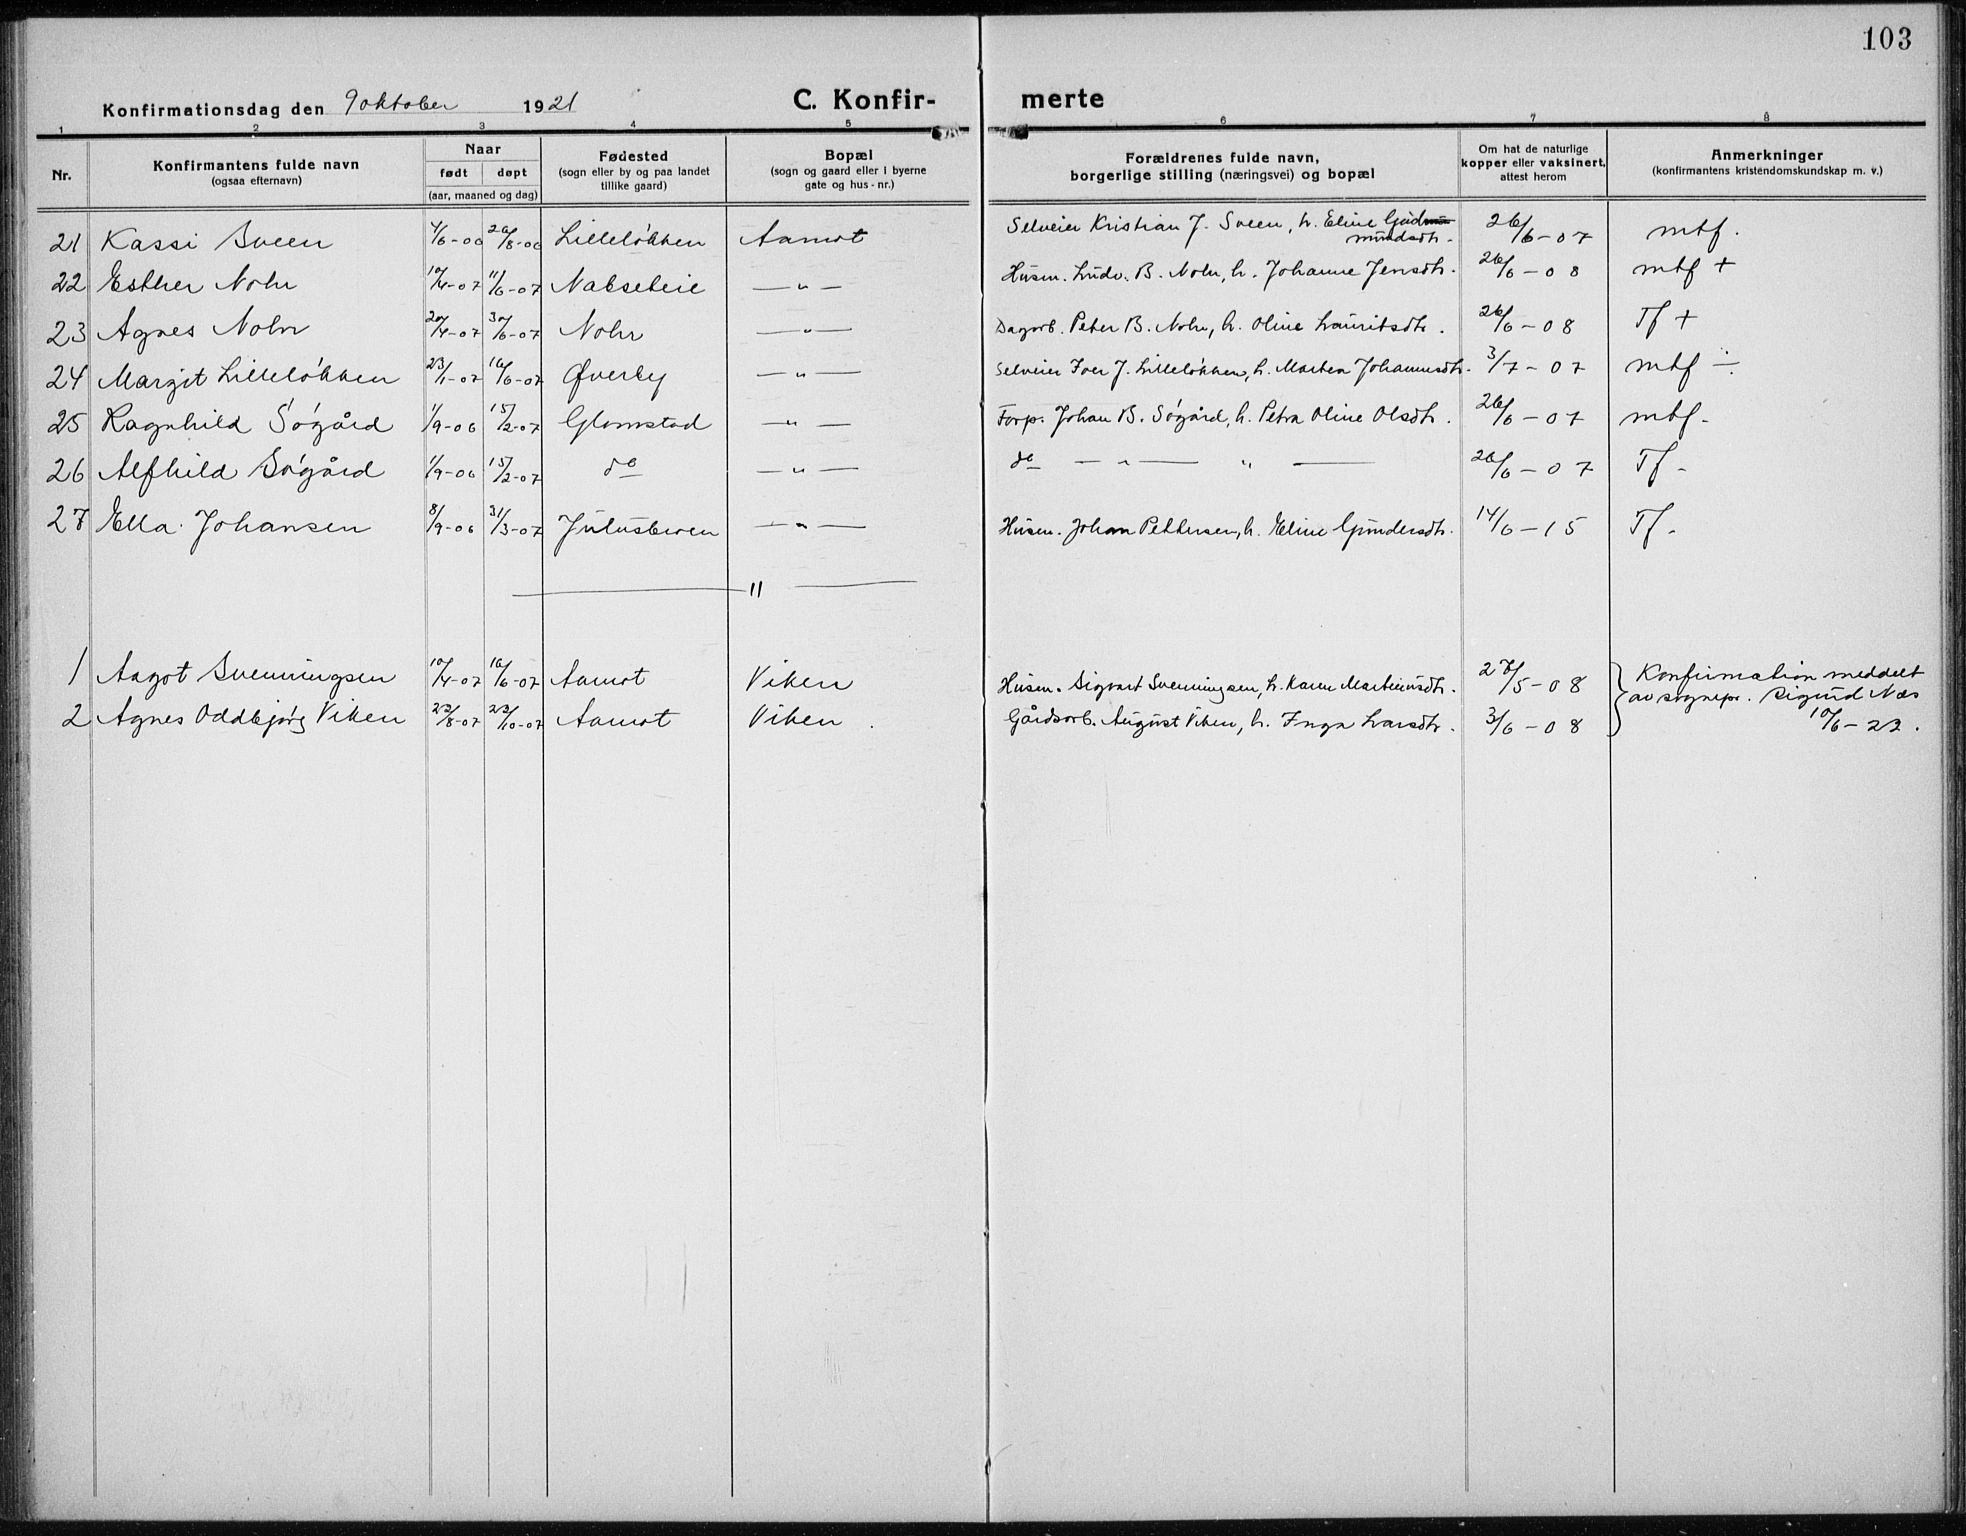 103
Konfirmationsdag den 9 oktober 1921 C. Konfir- merte
1 2 3 4 5 6 7 8
Nr. Konfirmantens fulde navn (ogsaa efternavn) Naar født døpt (aar, maaned og dag) Fødested (sogn eller by og paa landet tillike gaard) Bopæl (sogn og gaard eller i byerne gate og hus-nr.) Forældrenes fulde navn, borgerlige stilling (næringsvei) og bopæl Om hat de naturlige kopper eller vaksinert, attest herom Anmerkninger (konfirmantens kristendomskundskap m. v.)
21 Kassi Sveen 4/6-06 26/8-06 Lilleløkken Aamot Selveier Kristian J. Sveen, h. Eline Gudmundsdtr. 26/6-07 mtf.
22 Esther Nohr 10/4-07 11/6-07 —"— Husm. Ludv. B. Nohr, h. Johanne Jensdtr. 26/6-08 mtf +
23 Agnes Nohr 20/4-07 30/6-07 Nohr —"— Dagarb. Peter B. Nohr, h. Oline Lauritsdtr. 26/6-08 Tf +
24 Margit Lilleløkken 23/1-07 16/6-07 Øverby —"— Selveier Iver J. Lilleløkken, h. Martea Johannesdtr. 3/7-07 mtf ÷
25 Ragnhild Søgård 1/9-06 15/2-07 Glomstad —"— Forp. Johan B. Søgård, h. Petra Oline Olsdtr. 26/6-07 mtf.
26 Alfhild Søgård 1/9-06 15/2-07 do —"— do — " — " — 26/6-07 Tf.
27 Ella Johansen 8/9-06 31/3-07 —"— Husm. Johan Pettersen, h. Eline Gundersdtr. 14/6-15 Tf.
— " —
1 Aagot Svenningsen 10/4-07 16/6-07 Aamot Viken Husm. Sigvart Svenningsen, h. Karen Martinusdtr. 27/5-08 } Konfirmation meddelt
av sognepr. Sigurd Næs
2 Agnes Oddbjørg Viken 23/8-07 23/10-07 Aamot Viken. Gårdsarb. August Viken, h. Inga Larsdtr. 3/6-08 10/6-22.